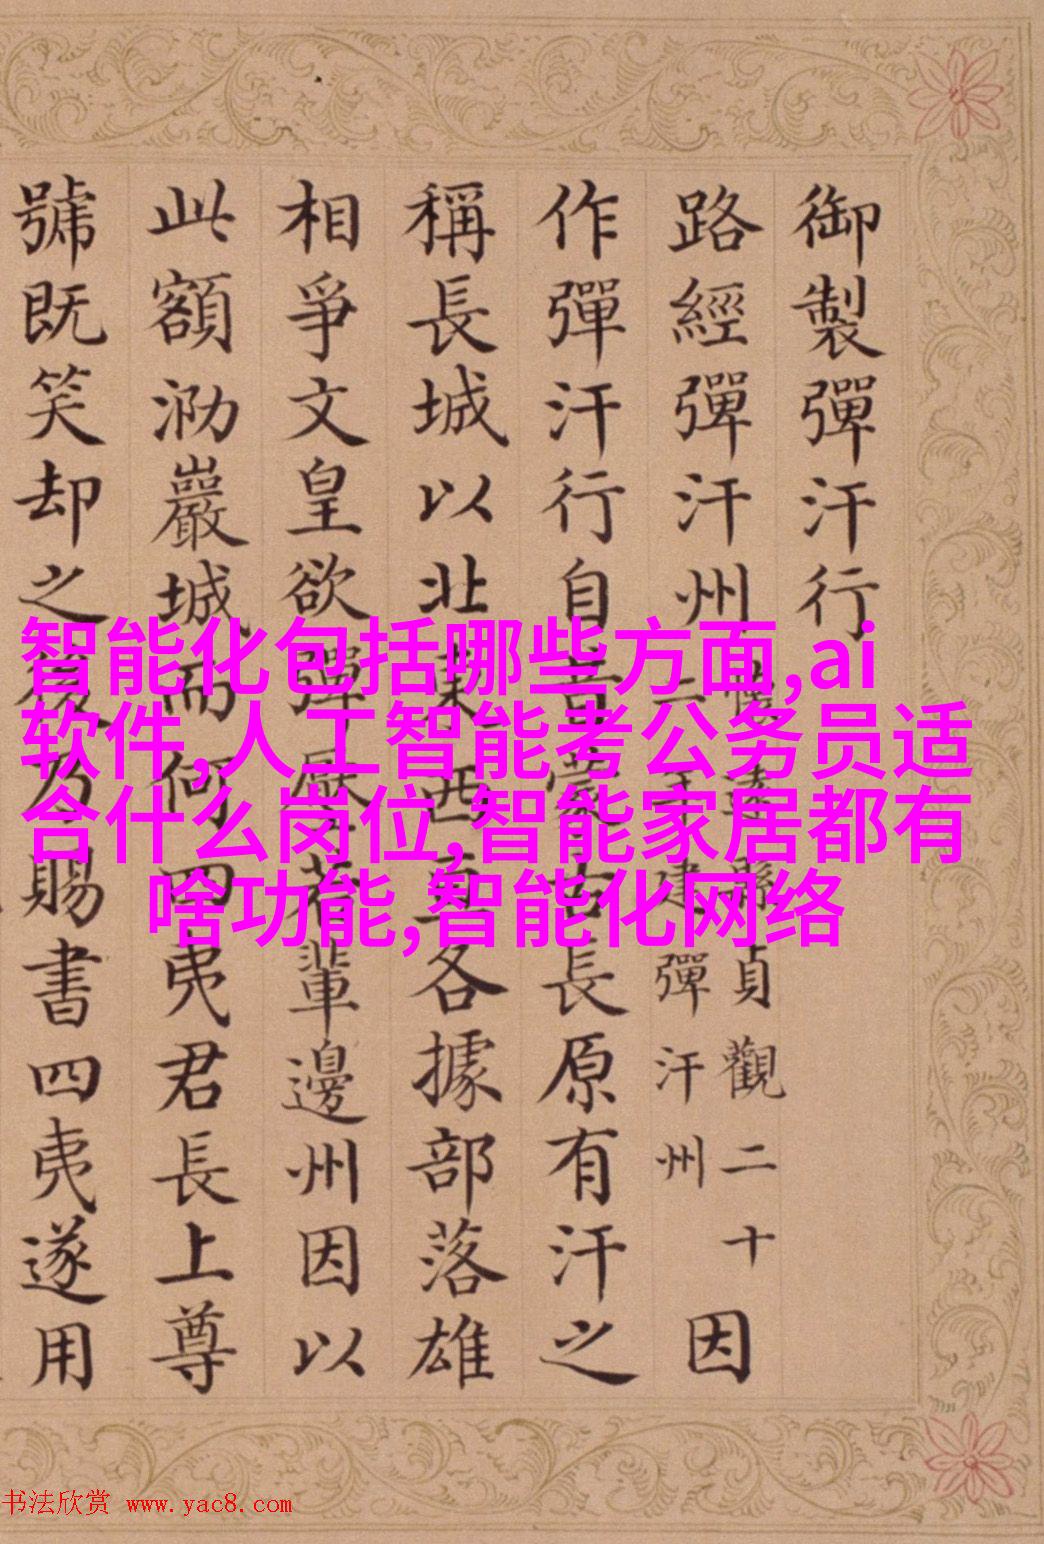 御製彈汗行
路經彈汗州
貞觀二十
二建彈汗州
因
作彈汗行自昔蒙古長原有汗之
稱長城以北西各據部落雄
相爭文皇欲彈壓輩邊州因以
此額泐巖城而何四夷君長上尊
號既笑却之後乃賜書四夷遂用
智能化包括哪些方面,ai
软件,人工智能考公务员适
合什么岗位,智能家居都有
啥功能,智能化网络
书法欣赏 www.yac8.com